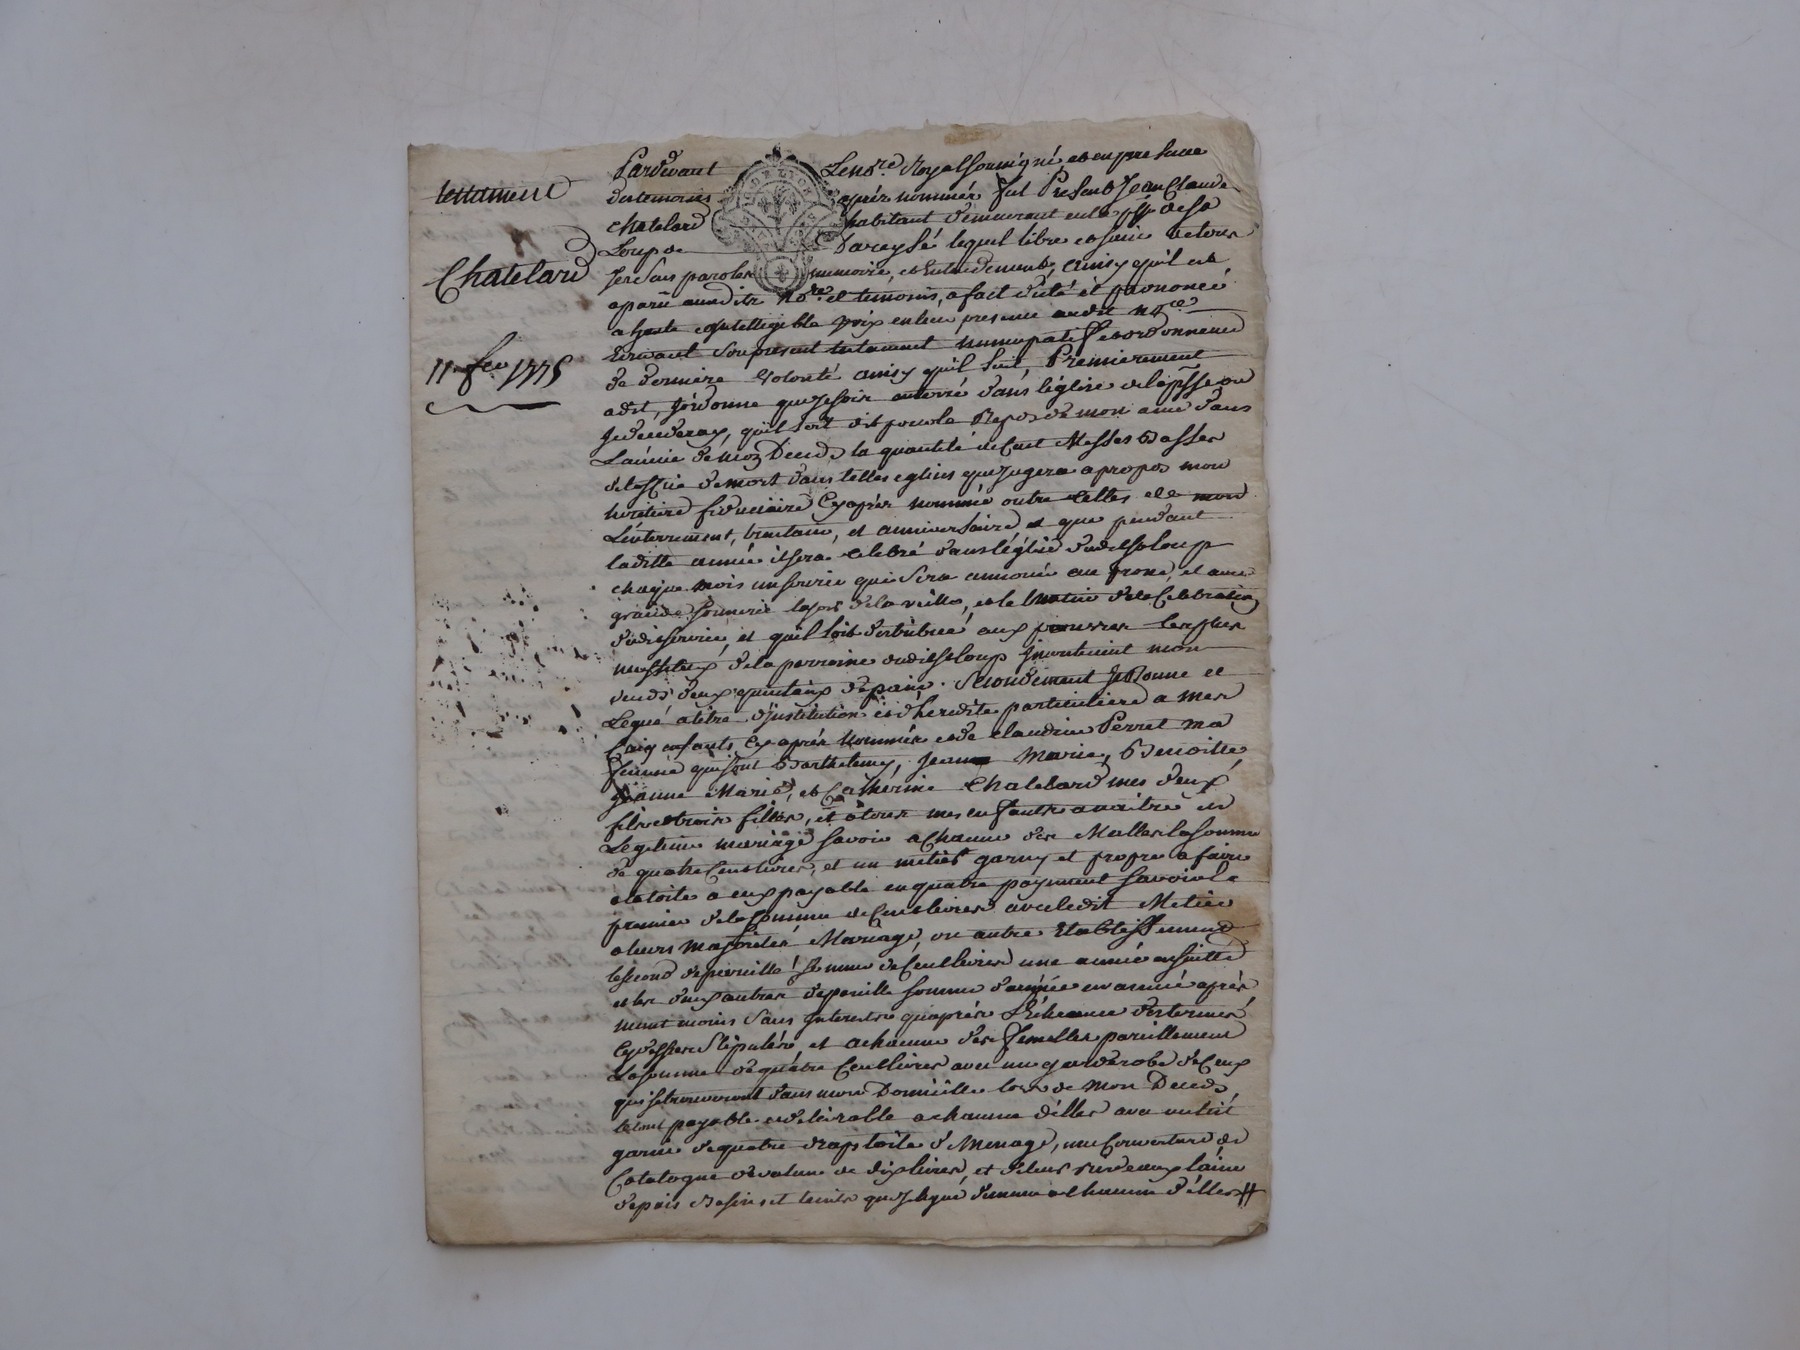 testament
Chatelard
11 fev 1775
Pardevant Le no.re Royal soussigné et en presence
des temoins après nommés fut Present Jean Claude
chatelard habitant demeurant en la p.sse de s.t
Loup de lequel libre et sain de tous
ses sens paroles memoire, et Entendement, ainsy qu'il est
aparu audit no.re et temoins, a fait dicté et prononcé
a haute et intelligible voix en leur presence audit no.re
Ecrivant son present testament nuncupatif et ordonnance
de derniere volonté ainsy qu'il suit, Premierement
a dit, J'ordonne que Je sois enterré dans l'église de la p.sse ou
Je decederay, qu'il soit dit pour le Repos de mon ame dans
L'année de mon Decés la quantité de Cent Messes Basses
de mort dans telles eglises que Jugera apropos mon
heritier fiduciaire Cy après nommé outre celles de mon
L'enterrement, trentain, et anniversaire et que pendant
laditte année il sera celebré dans l'église dudit s.t Loup
chaque mois un service qui sera annoncé au prone, et avec
grande sonnerie le soir de la veille, et le matin de la Celebration
dudit service, et qu'il soit distribué aux pauvres les plus
necessiteux de la parroisse dudit s.t Loup Incontinent mon
decés deux quintaux de pain. Secondement Je Donne et
Legue a titre d'institution et d'heredite particuliere a mes
Cinq enfants Cy après nommés et de claudine Perret ma
femme qui sont Barthelemy, Jean Marie, Benoitte,
Jeanne Marie, et Catherine Chatelard mes deux
fils et trois filles, et a tous mes enfants a naitre en
Legitime mariage savoir a Chacun des Malles la somme
de quatre Cent livres, et un métier garny et propre a faire
de la toile a eux payable en quatre payment savoir le
premier de la somme de Cent livres avec ledit Metier
a leurs majorité Mariage, ou autre Etablissement
le second de pareille somme de Cent livres une année ensuitte
et les deux autres de pareille somme d'année en année après
neant moins sans Interests qu'après L'échéance des termes
Cy dessus stipulés, et a chacune des femelles pareillement
La somme de quatre Cent livres avec une garderobe de Ceux
qui se trouveront dans mon Domicille lors de mon Decés,
le tout payable et delivrable a chacune d'elles avec un lit
garni de quatre draps toile de Menage, une Couverture de
Catalogne de valeur de dix livres, et de leurs rideaux laine
que Je legue de meme a chacune d'elles #